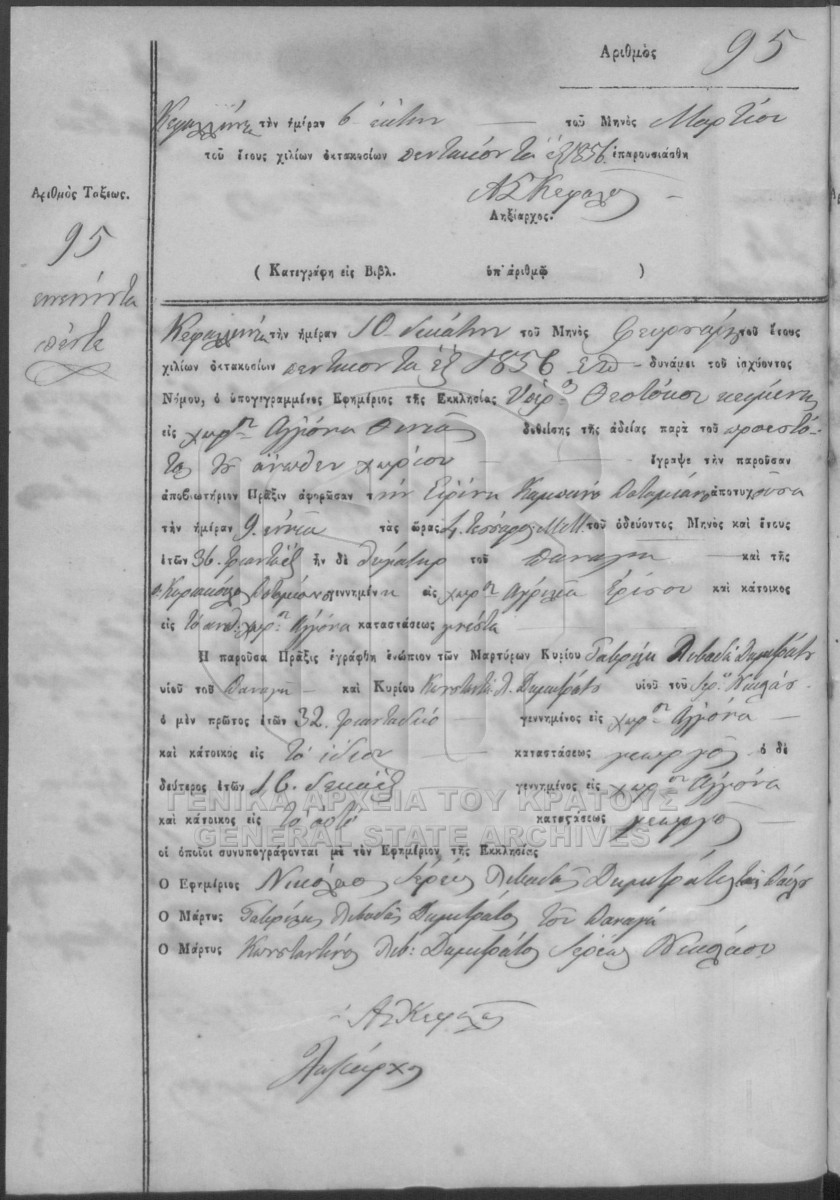 Αριθμὸς 95
Κεφαλληνία τὴν ἡμέραν 6 ἕκτην τοῦ Μηνὸς Μαρτίου
τοῦ ἔτους χιλίων ὀκτακοσίων πεντακόντα ἑξ 1856 ἐπαρουσιάσθη
Α Σ Κεφαλᾶς
Ληξίαρχος.
Αριθμὸς Τάξεως.
95
εννενήντα
πέντε
( Κατεγράφη εἰς Βιβλ. ὑπ' ἀριθμῷ )
Κεφαλληνία τὴν ἡμέραν 10 δεκάτην τοῦ Μηνὸς Φευρουαρίου τοῦ ἔτους
χιλίων ὀκτακοσίων πεντακοντα ἑξ 1856 δυνάμει τοῦ ἰσχύοντος
Νόμου, ὁ ὑπογεγραμμένος Ἐφημέριος τῆς Ἐκκλησίας Θεοτόκου κειμένης
εἰς χωρ: Αγόνα Θινιᾶς δοθείσης τῆς ἀδείας παρὰ τοῦ προεστῶ-
τος τοῦ ἄνωθεν χωρίου ἔγραψε τὴν παροῦσαν
ἀποβιωτήριον Πρᾶξιν ἀφορῶσαν τὴν Ειρίνη Ποταμιάνο ἀποτυχοῦσα
τὴν ἡμέραν 9. εννέα τὰς ὥρας 4. τέσσαρες Μ.Μ. τοῦ ὁδεύοντος Μηνὸς καὶ ἔτους
ἐτῶν 36. τριανταέξ ἦν δὲ θυγάτηρ τοῦ Παναγῆ καὶ τῆς
γεννημένη εἰς χωρ: Αγριλιᾶ Ερίσου καὶ κάτοικος
εἰς χωρ: Αγόνα καταστάσεως
Η παροῦσα Πρᾶξις ἐγράφθη ἐνώπιον τῶν Μαρτύρων Κυρίου Γαβρίλη Λιβαδᾶ Δημητράτο
υἱοῦ τοῦ Παναγῆ καὶ Κυρίου Κωνσταντί Λ. Δημητράτο υἱοῦ τοῦ Ἱερ: Νικολάου
ὁ μὲν πρῶτος ἐτῶν 32. τριανταδύο γεννημένος εἰς χωρ: Αγόνα
καὶ κάτοικος εἰς τὸ ἴδιον καταστάσεως γεωργὸς ὁ δὲ
δεύτερος ἐτῶν 16. δεκαέξ γεννημένος εἰς χωρ: Αγόνα
καὶ κάτοικος εἰς καταστάσεως γεωργὸς
οἱ ὁποῖοι συνυπογράφονται μὲ τὸν Ἐφημέριον τῆς Ἐκκλησίας
Ο Ἐφημέριος Νικόλαος Ἱερεὺς Λιβαδᾶς Δημητράτος
Ο Μάρτυς Γαβρίλης Λιβαδᾶς Δημητράτος τοῦ Παναγῆ
Ο Μάρτυς Κωνσταντίνος Λιβ: Δημητράτος Ἱερέως Νικολάου
Α Σ Κεφαλᾶς
Ληξίαρχος
ΓΕΝΙΚΑ ΑΡΧΕΙΑ ΤΟΥ ΚΡΑΤΟΥΣ
GENERAL STATE ARCHIVES